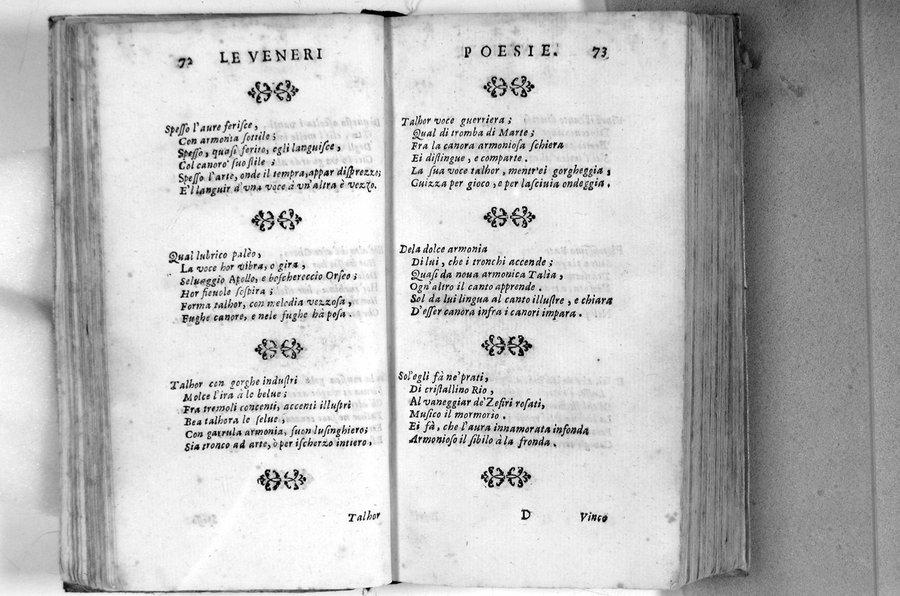 72 LE VENERI
Speſſo l'aure feriſce,
Con armonia ſottile;
Speſſo, quaſi ferito, egli languiſce,
Col canoro ſuo ſtile;
Speſſo l'arte, onde il tempra, appar diſprezzo;
E'l languir d'vna voce à vn'altra è vezzo.
Qual lubrico palèo,
La voce hor vibra, o gira,
Seluaggio Apollo, e boſchereccio Orfeo;
Hor fieuole ſoſpira;
Forma talhor, con melodia vezzoſa,
Fughe canore, e nele fughe hà poſa.
Talhor con gorghe induſtri
Molce l'ira à le belue;
Fra tremoli concenti, accenti illuſtri
Bea talhora le ſelue;
Con garrula armonia, ſuon luſinghiero;
Sia tronco ad arte, ò per iſcherzo intiero,
Talhor
POESIE. 73
Talhor voce guerriera;
Qual di tromba di Marte;
Fra la canora armonioſa ſchiera
Ei diſtingue, e comparte.
La ſua voce talhor, mentr'ei gorgheggia,
Guizza per gioco, e per laſciuia ondeggia.
Dela dolce armonia
Di lui, che i tronchi accende;
Quaſi da noua armonica Talia,
Ogn'altro il canto apprende.
Sol da lui lingua al canto illuſtre, e chiara
D'eſſer canora infra i canori impara.
Sol'egli fà ne'prati,
Di criſtallino Rio,
Al vaneggiar de'Zefiri roſati,
Muſico il mormorio.
Ei fà, che l'aura innamorata infonda
Armonioſo il ſibilo à la fronda.
D Vinco